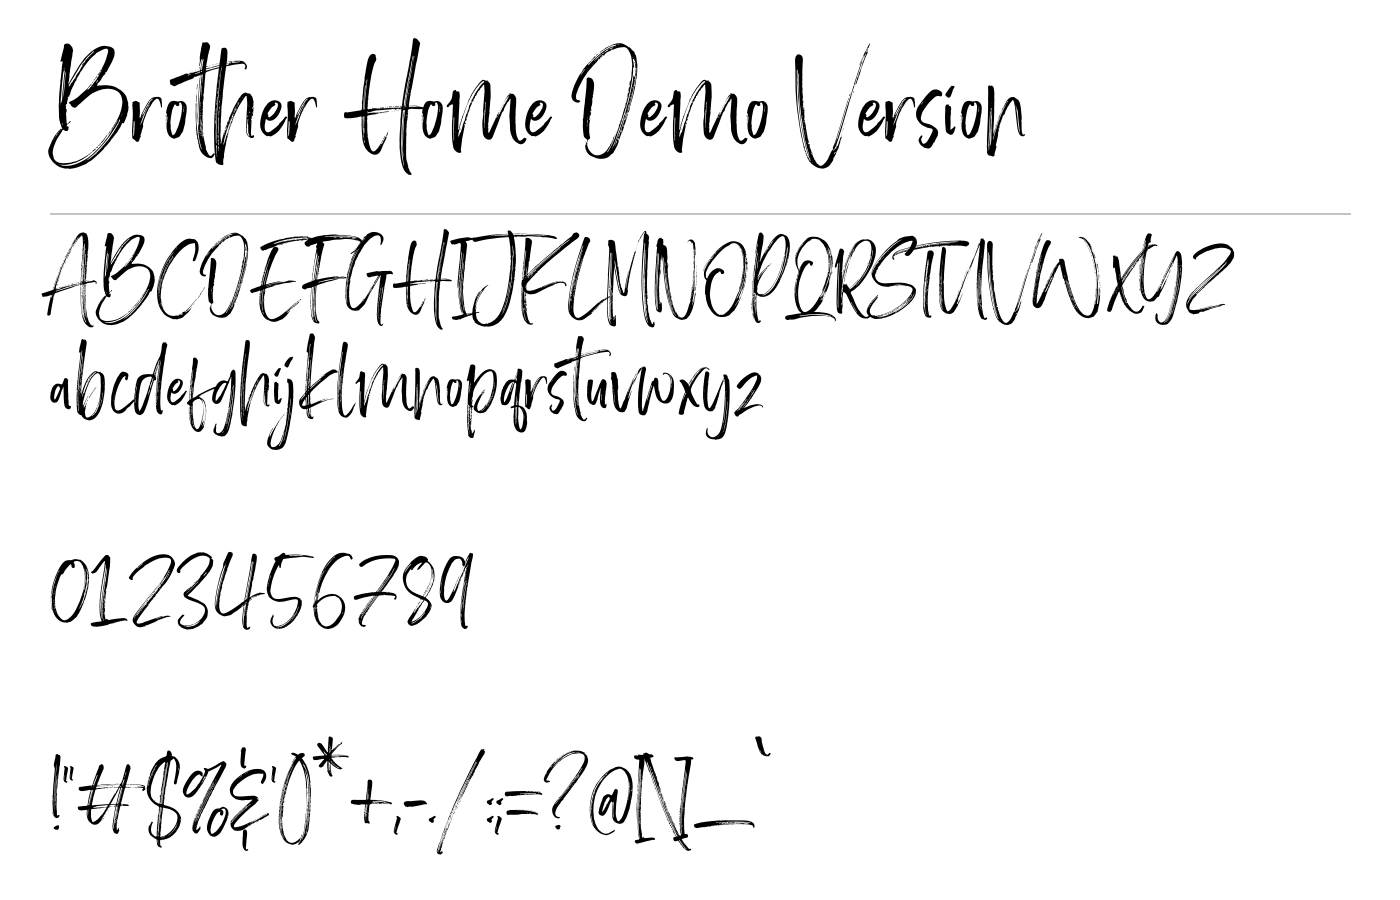 Brother Home Demo Version
ABCDEFGHIJKLMNOPQRSTUVWXYZ
abcdefghijklmnopqrstuvwxyz
0123456789
!"#$%&'()*+,-./:;=?@[\]_`